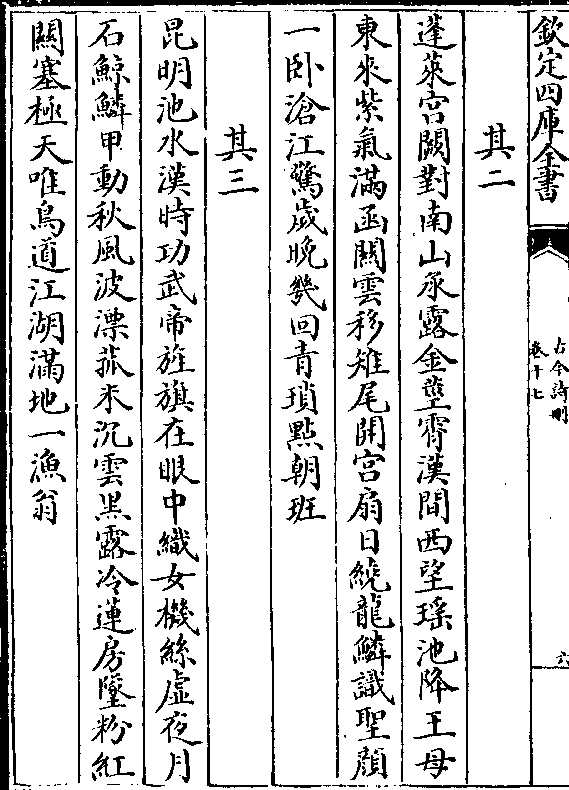 欽定四庫全書
古今詩刪
卷十七
六
其二
蓬萊宮闕對南山承露金莖霄漢間西望瑶池降王母
東來紫氣滿函關雲移雉尾開宮扇日繞龍鱗識聖顔
一卧滄江驚歲晚幾回青瑣點朝班
其三
昆明池水漢時功武帝旌旗在眼中織女機絲虛夜月
石鯨鱗甲動秋風波漂菰米沉雲黒露冷蓮房墜粉紅
關塞極天唯鳥道江湖滿地一漁翁